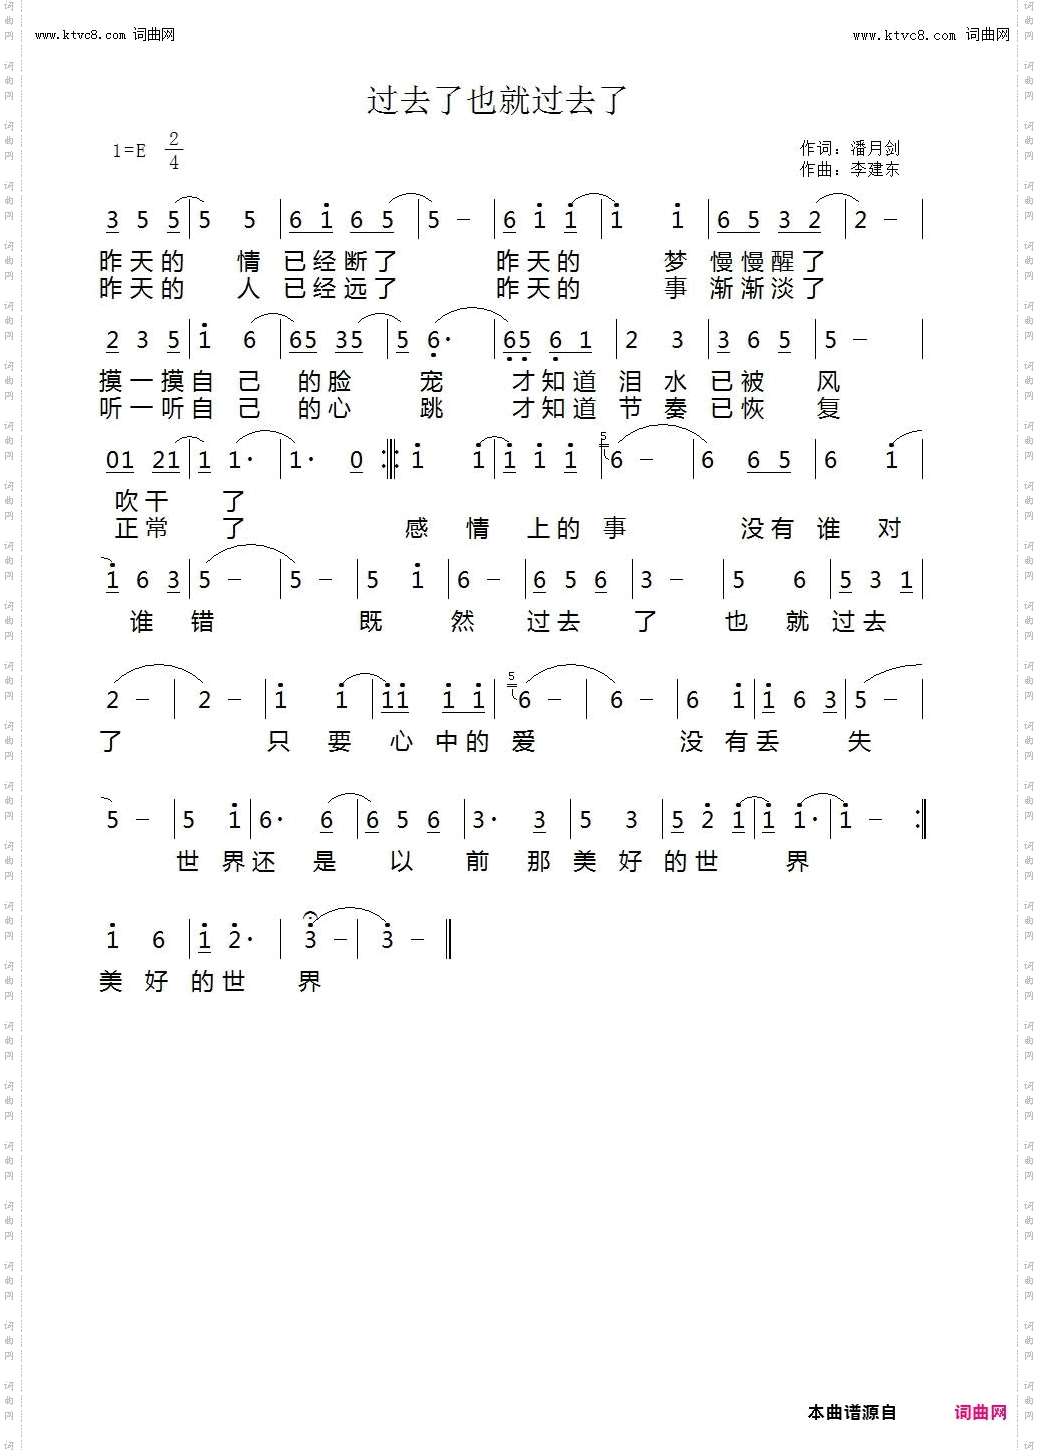 www.ktvc8.com 词曲网
www.ktvc8.com 词曲网
过去了也就过去了
1=E 2/4
作词：潘月剑
作曲：李建东
3 5 5 | 5 5 | 6 i 6 5 | 5 － | 6 i i | i i | 6 5 3 2 | 2 － |
昨天的 情 已经断了 昨天的 梦 慢慢醒了
昨天的 人 已经远了 昨天的 事 渐渐淡了
2 3 5 | i 6 | 65 35 | 5 6· | 65 6 1 | 2 3 | 3 6 5 | 5 － |
摸一摸自 己 的脸 宠 才知道泪 水已被 风
听一听自 己 的心 跳 才知道节 奏已恢 复
01 21 | 1 1· | 1· 0 :‖: i i | i i i | 5 6 － | 6 6 5 | 6 i |
吹干 了
正常 了 感 情 上的事 没有谁 对
i 6 3 | 5 － | 5 － | 5 i | 6 － | 6 5 6 | 3 － | 5 6 | 5 3 1 |
谁 错 既 然 过去 了 也 就 过去
2 － | 2 － | i i | ii i i | 5 6 － | 6 － | 6 i | i 6 3 | 5 － |
了 只 要 心 中的 爱 没 有丢 失
5 － | 5 i | 6· 6 | 6 5 6 | 3· 3 | 5 3 | 5 2 i | i i· | i － :‖
世 界还 是 以 前 那 美 好 的世 界
i 6 | i 2· | 3 － | 3 － ‖
美 好 的世 界
本曲谱源自 词曲网